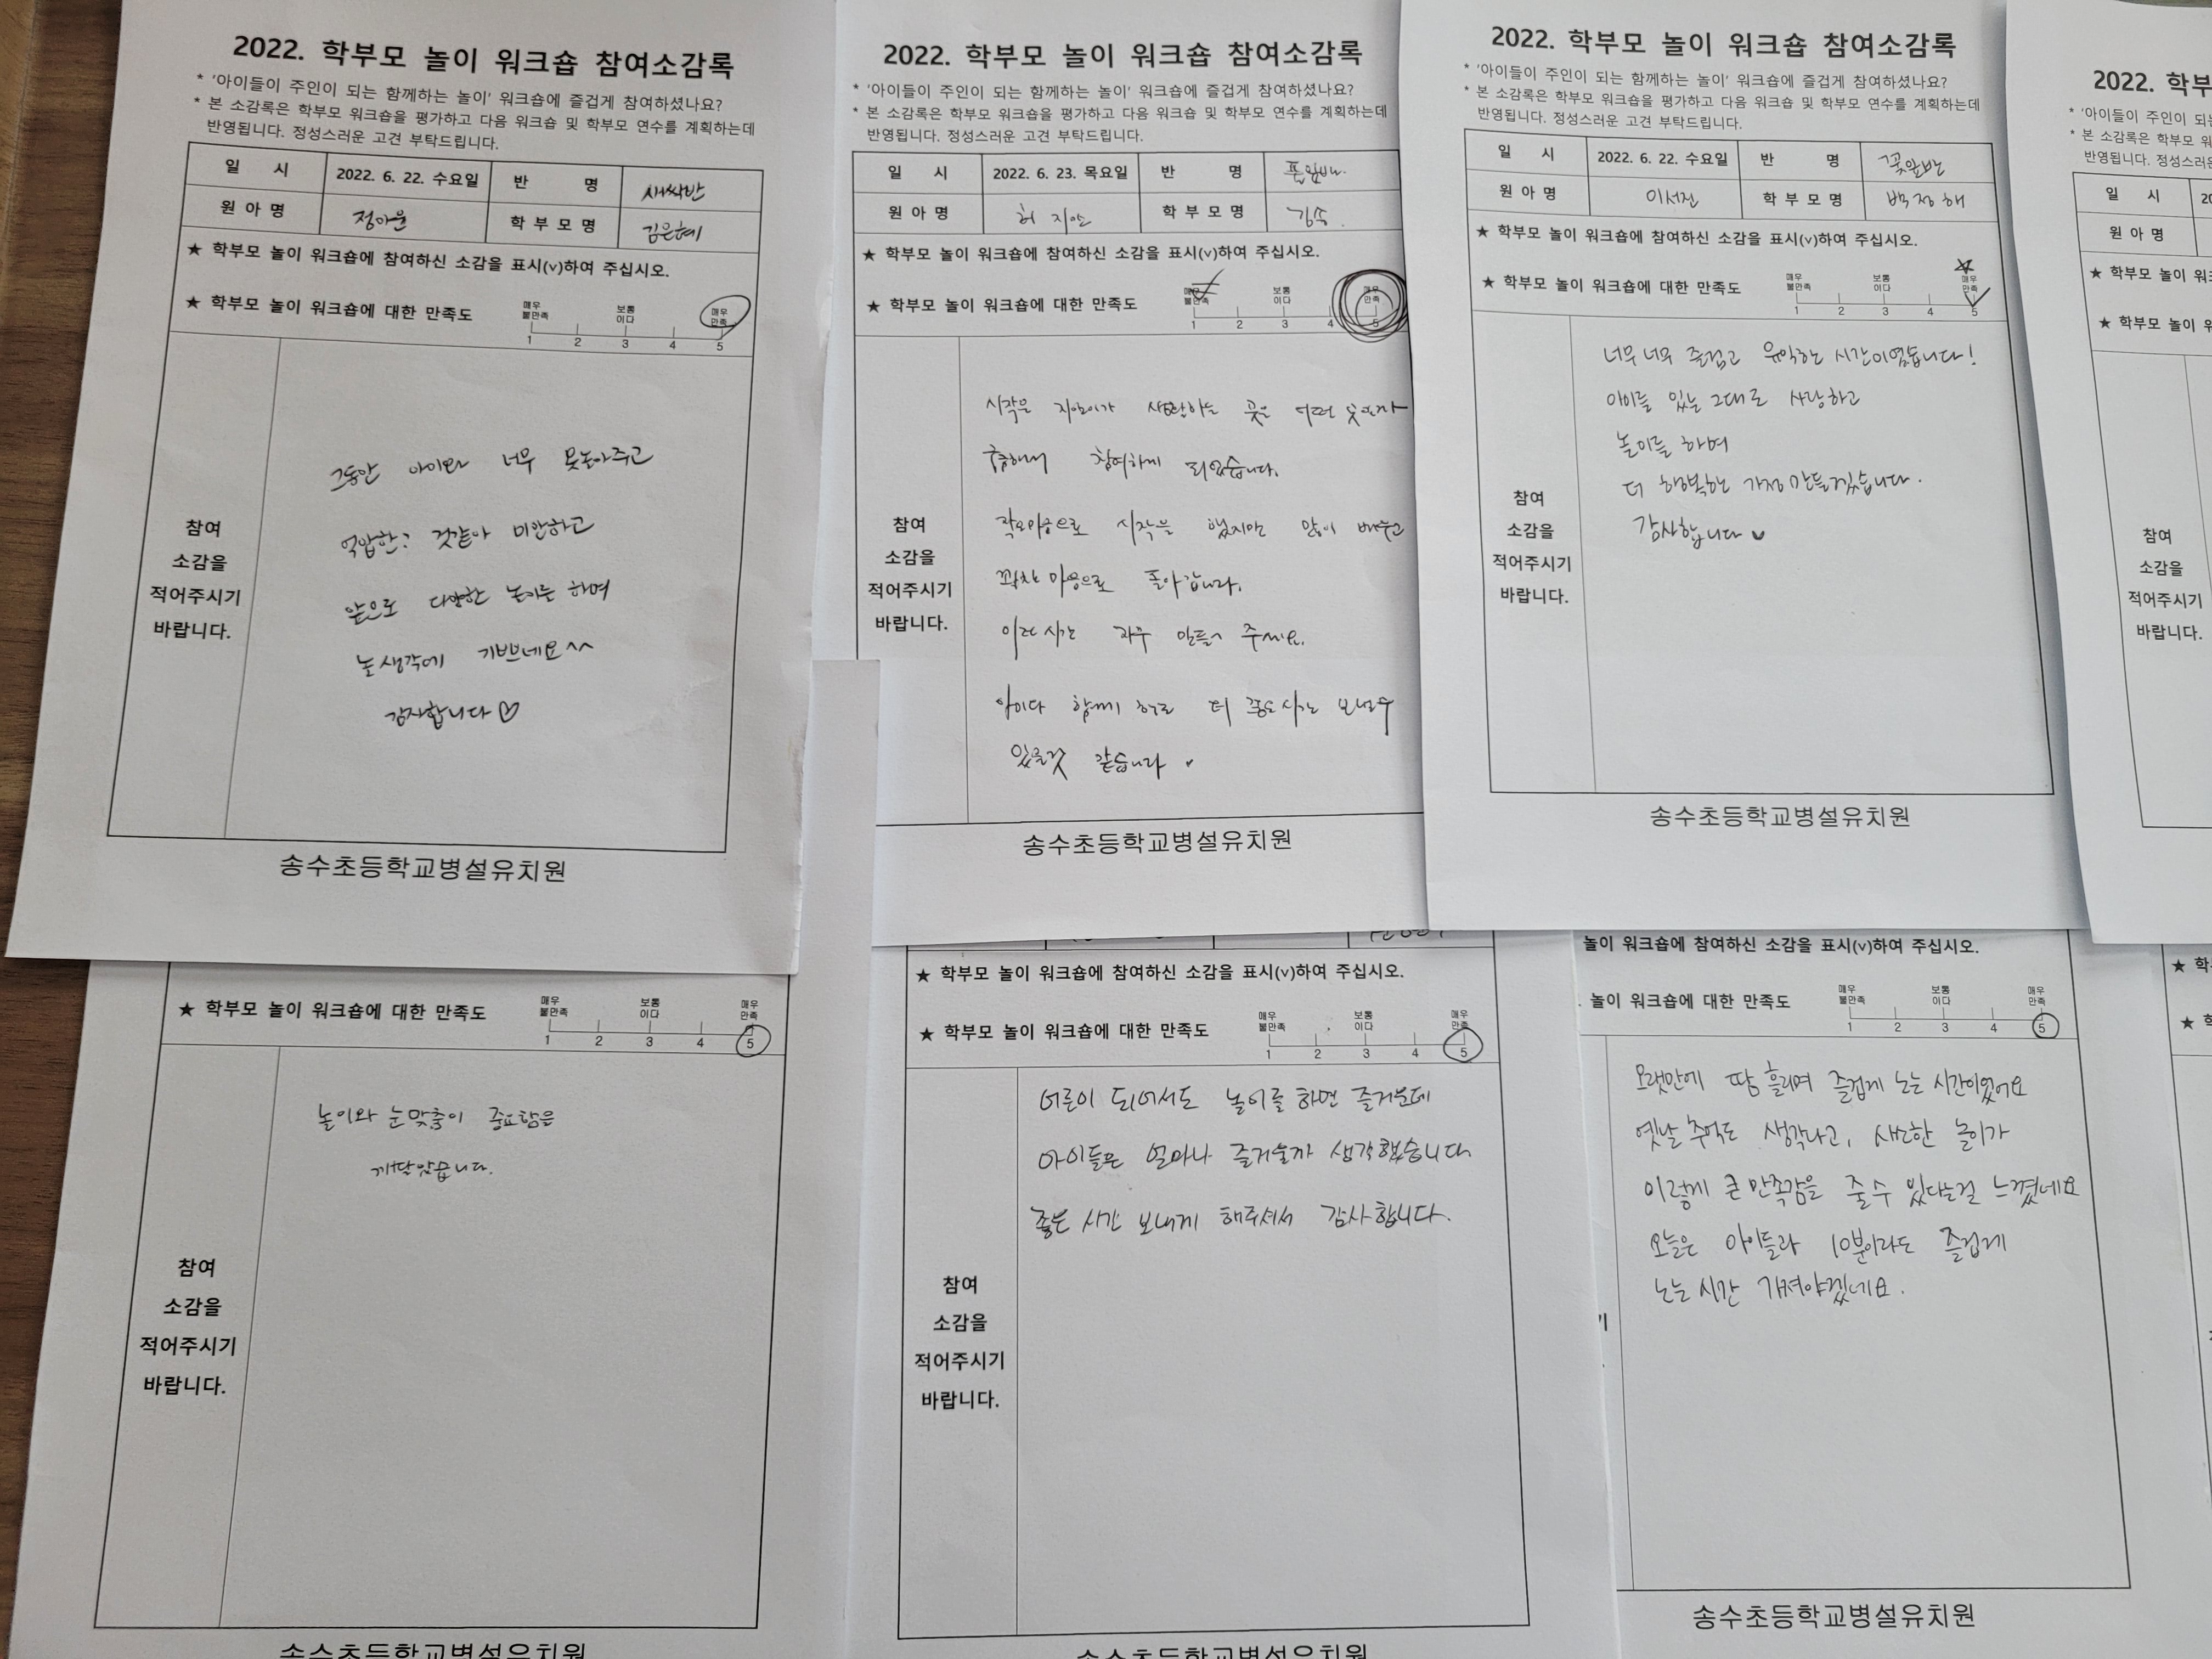 2022. 학부모 놀이 워크숍 참여소감록
* '아이들이 주인이 되는 함께하는 놀이' 워크숍에 즐겁게 참여하셨나요?
* 본 소감록은 학부모 워크숍을 평가하고 다음 워크숍 및 학부모 연수를 계획하는데
반영됩니다. 정성스러운 고견 부탁드립니다.
일 시 2022. 6. 22. 수요일 반 명 새싹반
원 아 명 정아윤 학 부 모 명 김은혜
★ 학부모 놀이 워크숍에 참여하신 소감을 표시(v)하여 주십시오.
★ 학부모 놀이 워크숍에 대한 만족도
매우 불만족 보통 이다 매우 만족
1 2 3 4 5
참여
소감을
적어주시기
바랍니다.
그동안 아이와 너무 못놀아주고
억압한? 것같아 미안하고
앞으로 다양한 놀이를 하며
놀생각에 기쁘네요^^
감사합니다♡
송수초등학교병설유치원
2022. 학부모 놀이 워크숍 참여소감록
* '아이들이 주인이 되는 함께하는 놀이' 워크숍에 즐겁게 참여하셨나요?
* 본 소감록은 학부모 워크숍을 평가하고 다음 워크숍 및 학부모 연수를 계획하는데
반영됩니다. 정성스러운 고견 부탁드립니다.
일 시 2022. 6. 23. 목요일 반 명 풀잎반
원 아 명 허 지안 학 부 모 명
★ 학부모 놀이 워크숍에 참여하신 소감을 표시(v)하여 주십시오.
★ 학부모 놀이 워크숍에 대한 만족도
매우 불만족 보통 이다 매우 만족
1 2 3 4 5
참여
소감을
적어주시기
바랍니다.
시작은 지안이가 생활하는 곳은 어떤
궁금해서 참여하게 되었습니다.
작은마음으로 시작을 했지만 많이 배우고
꽉찬 마음으로 돌아갑니다.
이런 시간 자주 만들어 주세요.
함께 하루 더 좋은 시간 보낼수
있을것 같습니다
송수초등학교병설유치원
2022. 학부모 놀이 워크숍 참여소감록
* '아이들이 주인이 되는 함께하는 놀이' 워크숍에 즐겁게 참여하셨나요?
* 본 소감록은 학부모 워크숍을 평가하고 다음 워크숍 및 학부모 연수를 계획하는데
반영됩니다. 정성스러운 고견 부탁드립니다.
일 시 2022. 6. 22. 수요일 반 명 꽃잎반
원 아 명 이서진 학 부 모 명 백정해
★ 학부모 놀이 워크숍에 참여하신 소감을 표시(v)하여 주십시오.
★ 학부모 놀이 워크숍에 대한 만족도
매우 불만족 보통 이다 매우 만족
1 2 3 4 5
참여
소감을
적어주시기
바랍니다.
너무너무 즐겁고 유익한 시간이였습니다!
아이들 있는 그대로 사랑하고
놀이를 하며
더 행복한 가정 만들겠습니다.
감사합니다♥
송수초등학교병설유치원
2022. 학부
* '아이들이 주인이 되는
* 본 소감록은 학부모 워
반영됩니다. 정성스러운
일 시
원 아 명
★ 학부모 놀이 워크
★ 학부모 놀이 워
참여
소감을
적어주시기
바랍니다.
★ 학부모 놀이 워크숍에 대한 만족도
매우 불만족 보통 이다 매우 만족
1 2 3 4 5
참여
소감을
적어주시기
바랍니다.
놀이와 눈맞춤이 중요함을
깨달았습니다.
송수초등학교병설유치원
★ 학부모 놀이 워크숍에 참여하신 소감을 표시(v)하여 주십시오.
★ 학부모 놀이 워크숍에 대한 만족도
매우 불만족 보통 이다 매우 만족
1 2 3 4 5
참여
소감을
적어주시기
바랍니다.
어른이 되어서도 놀이를 하면 즐거운데
아이들은 얼마나 즐거울까 생각했습니다.
좋은 시간 보내게 해주셔서 감사합니다.
송수초등학교병설유치원
놀이 워크숍에 참여하신 소감을 표시(v)하여 주십시오.
놀이 워크숍에 대한 만족도
매우 불만족 보통 이다 매우 만족
1 2 3 4 5
오랫만에 땀 흘리며 즐겁게 노는 시간이었어요
옛날 추억도 생각나고, 사소한 놀이가
이렇게 큰 만족감을 줄 수 있다는걸 느꼈네요
오늘은 아이들과 10분이라도 즐겁게
노는 시간 가져야겠네요.
송수초등학교병설유치원